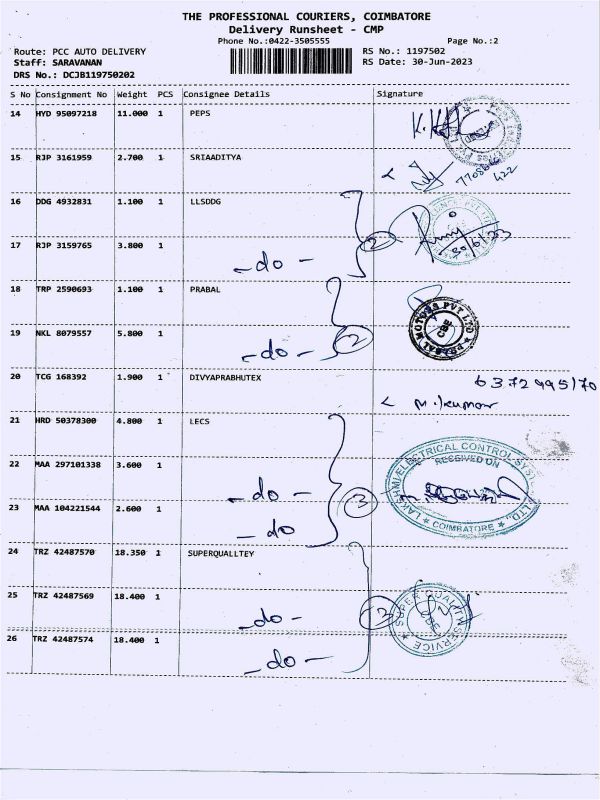 THE PROFESSIONAL COURIERS, COIMBATORE
Delivery Runsheet - CMP
Phone No.:0422-3505555 Page No.:2
Route: PCC AUTO DELIVERY RS No.: 1197502
Staff: SARAVANAN RS Date: 30-Jun-2023
DRS No.: DCJB119750202
S No Consignment No Weight PCS Consignee Details Signature
14 HYD 95097218 11.000 1 PEPS
15 RJP 3161959 2.700 1 SRIAADITYA
422
16 DDG 4932831 1.100 1 LLSDDG
2
17 RJP 3159765 3.800 1 -do- 30/6/23
18 TRP 2590693 1.100 1 PRABAL
PRABAL MOTORS PVT LTD CBE
19 NKL 8079557 5.800 1 -do- 2
20 TCG 168392 1.900 1 DIVYAPRABHUTEX 6372995170
M.kumar
21 HRD 50378300 4.800 1 LECS
LAKSHMI ELECTRICAL CONTROL SYSTEMS LTD., COIMBATORE
RECEIVED ON
22 MAA 297101338 3.600 1 -do- 3
23 MAA 104221544 2.600 1 -do
24 TRZ 42487570 18.350 1 SUPERQUALLTEY
25 TRZ 42487569 18.400 1 -do- 3
SUPER QUALITY SERVICE CBE
26 TRZ 42487574 18.400 1 -do-